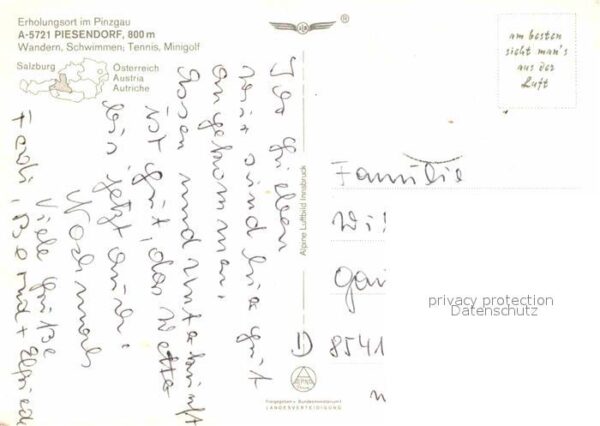 Erholungsort im Pinzgau
A-5721 PIESENDORF, 800 m
Wandern, Schwimmen, Tennis, Minigolf
Salzburg
Österreich
Austria
Autriche
®
am besten
sieht man's
aus der
Luft
Ihr Lieben
wir sind hier gut
angekommen.
Essen und Unterkunft
ist gut, das Wetter
jetzt auch.
Nochmals
viele Grüße
+ Elfriede
Alpine Luftbild Innsbruck
Familie
Wi
Gar
D 8541
privacy protection
Datenschutz
ALPINE
Freigegeben v. Bundesministerium f.
LANDESVERTEIDIGUNG